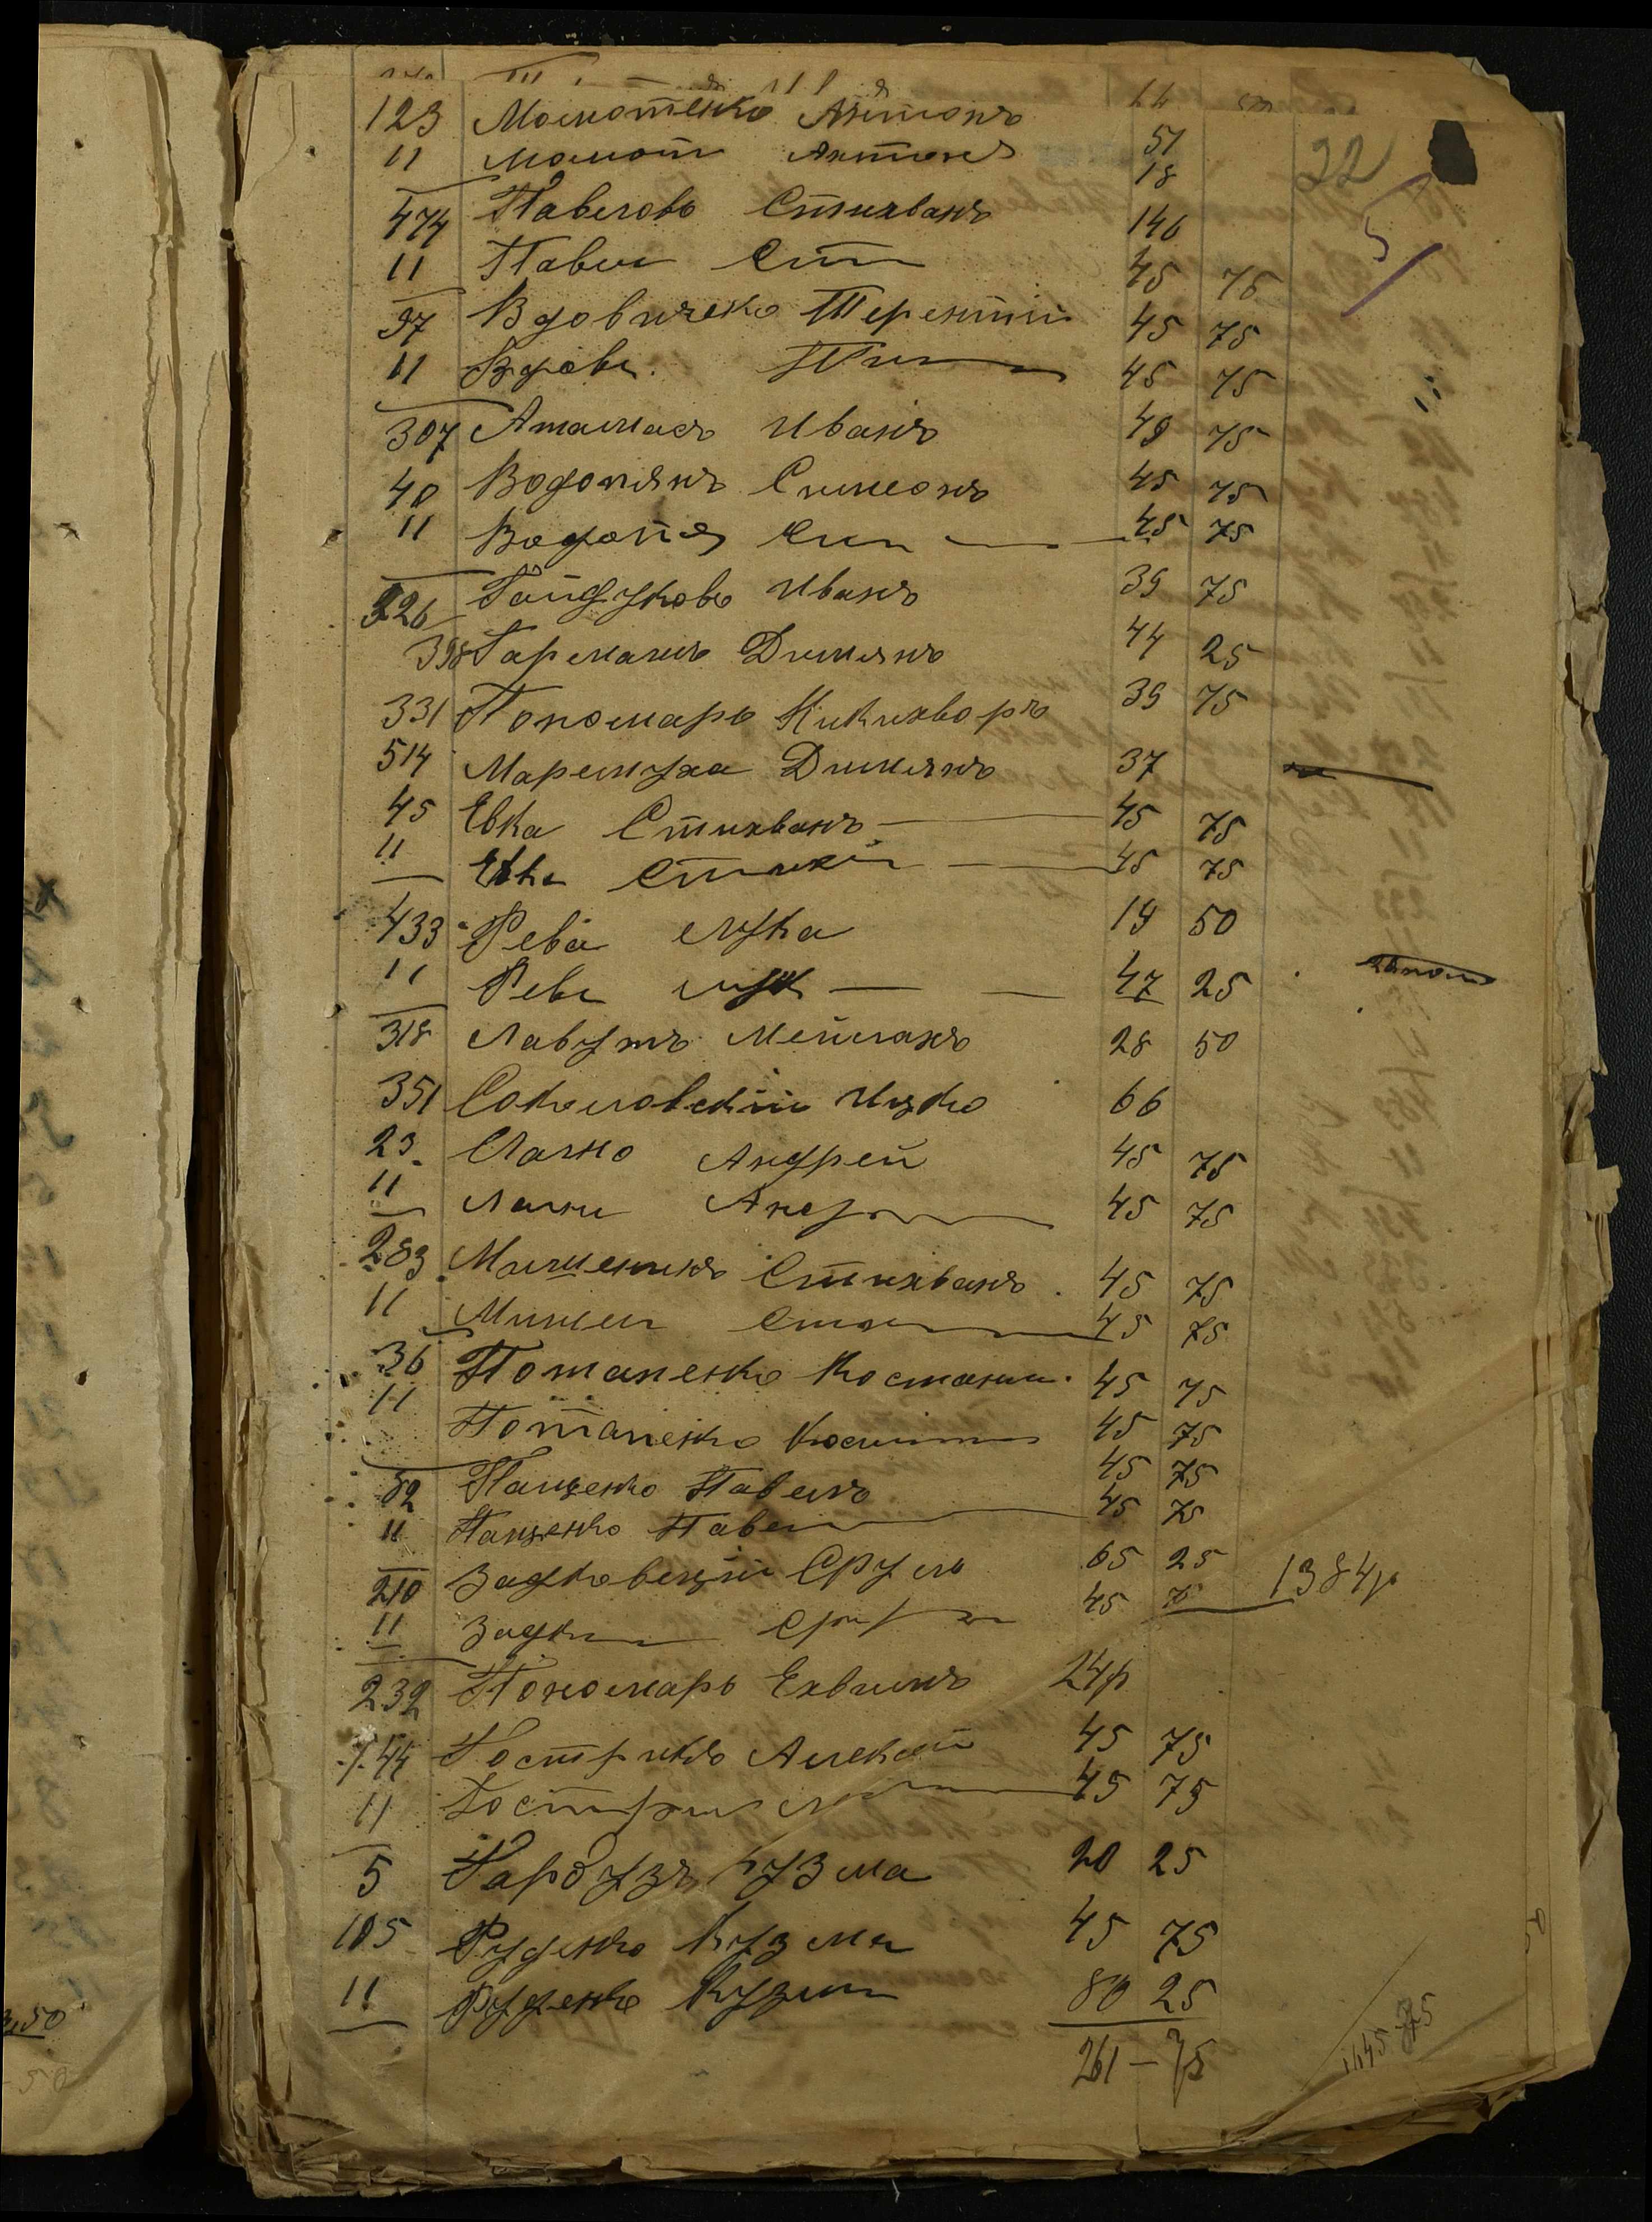 22
123 Момотенко Антонъ 51
11 Момот Антоне 18
474 Павловъ Стихванъ 146
11 Павл Ст 45 75
97 Вдовиченко Терентій 45 75
11 Вдови. Т 45 75
307 Атамасъ Иванъ 49 75
40 Водопянъ Симеонъ 45 75
11 Водопя Сим 45 75
326 Гайдуковъ Иванъ 39 75
398 Гармашъ Димянъ 44 25
331 Пономарь Никихворъ 39 75
514 Маремуха Димянъ 37
45 Евка Стихванъ 45 75
11 Евка Стих 45 75
433 Рева Лука 19 50
11 Рева Лук 47 25
318 Лавутъ Мейлахъ 28 50
351 Соколовскій Ицко 66
23 Лахно Андрей 45 75
11 Лахн Андр 45 75
283 Машеникъ Стихванъ 45 75
11 45 75
36 Потапенко Костант. 45 75
11 Потапенко Костант 45 75
82 Пащенко Павелъ 45 75
11 Пащенко Павел 45 75
210 Задковецкій Сруль 65 25
11 Задк Сру 45 75 1384р
239 Пономарь Ехвимъ 24р
144 Гострикъ Алексей 45 75
11 Гостри 45 75
5 Гарбузъ Кузма 20 25
105 Руденко Кузма 45 75
11 Руденко Кузма 80 25
261 – 75
1645 75